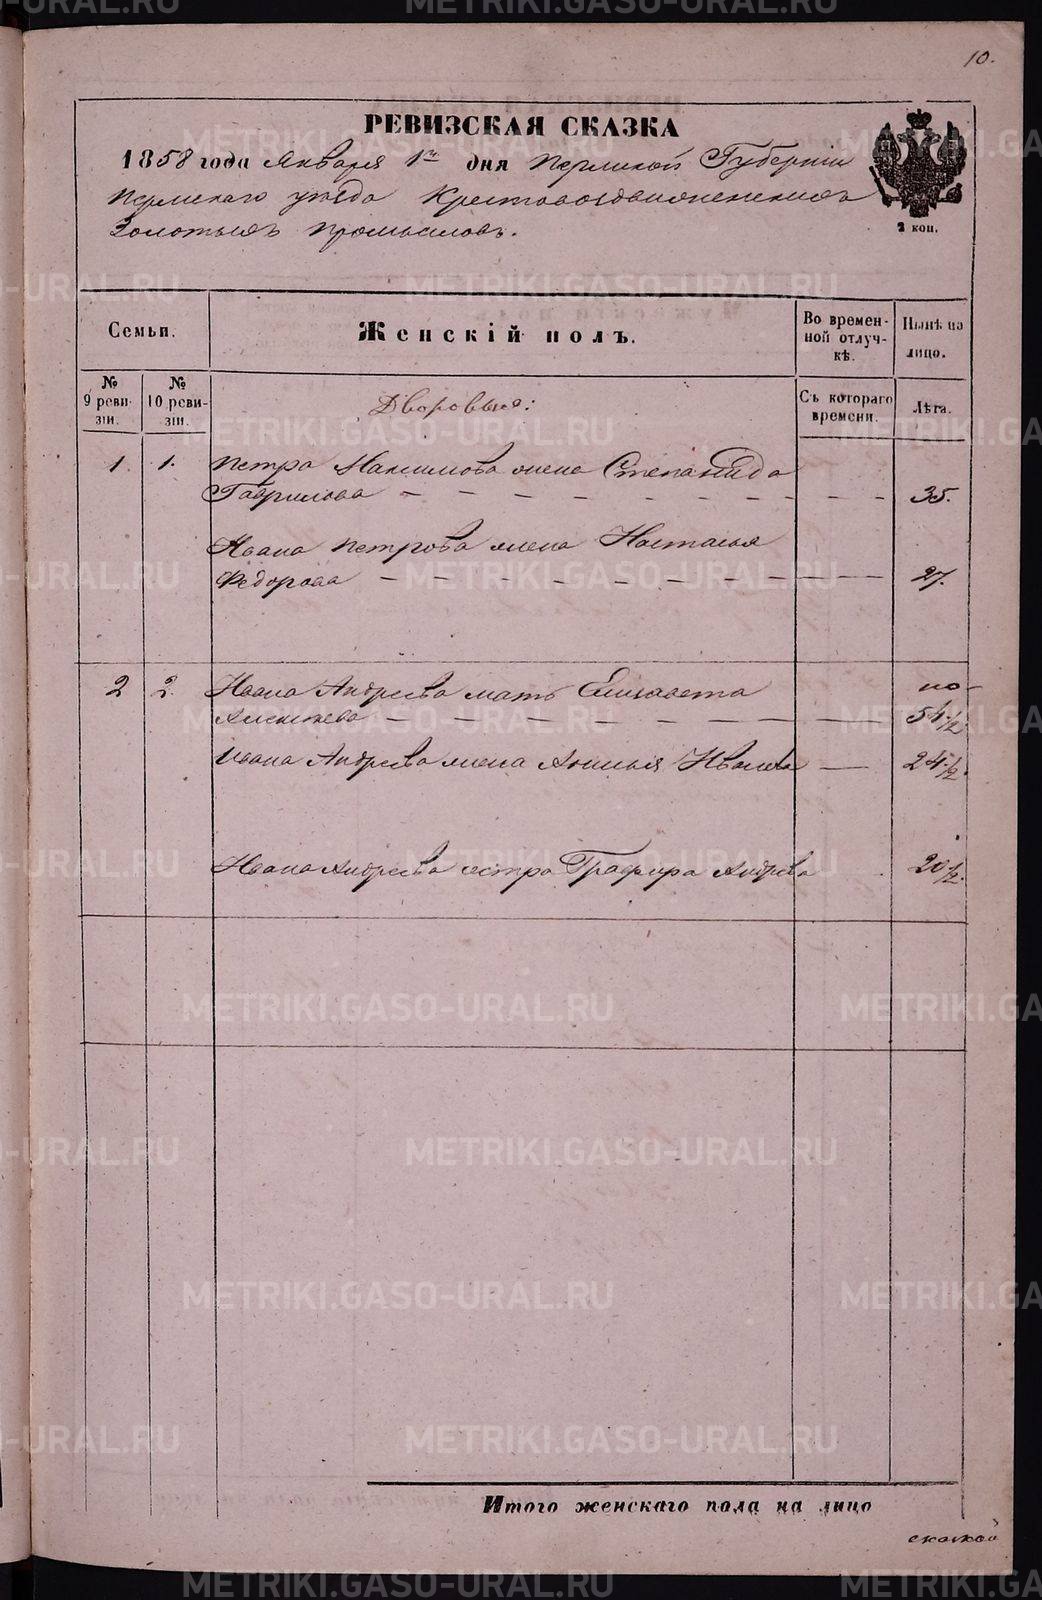 10.
РЕВИЗСКАЯ СКАЗКА
1858 года Января 1го дня Пермской Губерніи
Пермскаго уѣзда Крестовоздвиженскихъ
Золотыхъ промысловъ.
2 коп.
Семьи.
Женскій полъ.
Во времен-
ной отлуч-
кѣ.
Нынѣ на
лицо.
№
9 реви-
зіи.
№
10 реви-
зіи.
Дворовыя:
Съ котораго
времени.
Лѣта.
1. 1. Петра Максимова жена Степанида
Гаврилова — — — — — — — — — 35.
Ивана Петрова жена Настасья
Федорова — — — — — — — — — 27.
2 2. Ивана Андреева мать Елисавета
Алексѣева — — — — — — — 54 1/2
Ивана Андреева жена Ивано — 24 1/2
Ивана Андреева сестра Графира Андреева 20 1/2.
Итого женскаго пола на лицо
METRIKI.GASO-URAL.RU